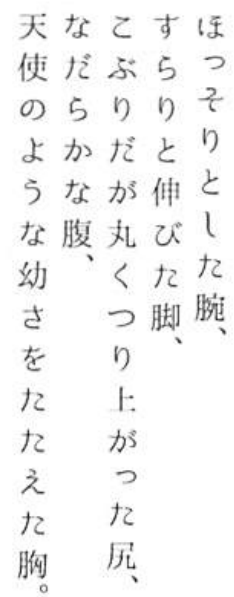 ほっそりとした腕、
すらりと伸びた脚、
こぶりだが丸くつり上がった尻、
なだらかな腹、
天使のような幼さをたたえた胸。